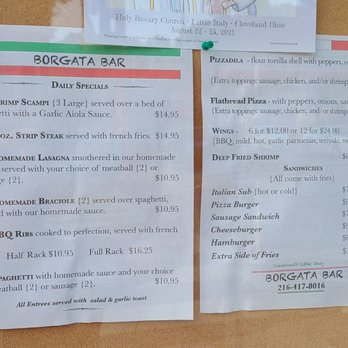 Holy Rosary Church - Little Italy - Cleveland Ohio
August 12 - 15, 2021
BORGATA BAR
DAILY SPECIALS
SCAMPI {3 Large} served over a bed of
with a Garlic Aiola Sauce. $14.95
STRIP STEAK served with french fries. $14.95
LASAGNA smothered in our homemade
served with your choice of meatball {2} or
{2}. $10.95
BRACIOLE {2} served over spaghetti,
with our homemade sauce. $10.95
RIBS cooked to perfection, served with french
Half Rack $10.95 Full Rack $16.25
with homemade sauce and your choice
{2} or sausage {2}. $10.95
All Entrees served with salad & garlic toast
PIZZADILA - flour tortilla shell with peppers,
{Extra toppings: sausage, chicken, and/or
Flatbread Pizza - with peppers, onions,
{Extra toppings: sausage, chicken, and/or
WINGS - 6 for $12.00 or 12 for $24.00
{BBQ, mild, hot, garlic parmesan, teriyaki,
DEEP FRIED SHRIMP
SANDWICHES
{All come with fries}
Italian Sub {hot or cold}
Pizza Burger
Sausage Sandwich
Cheeseburger
Hamburger
Extra Side of Fries
Cleveland's Little Italy
BORGATA BAR
216-417-8016